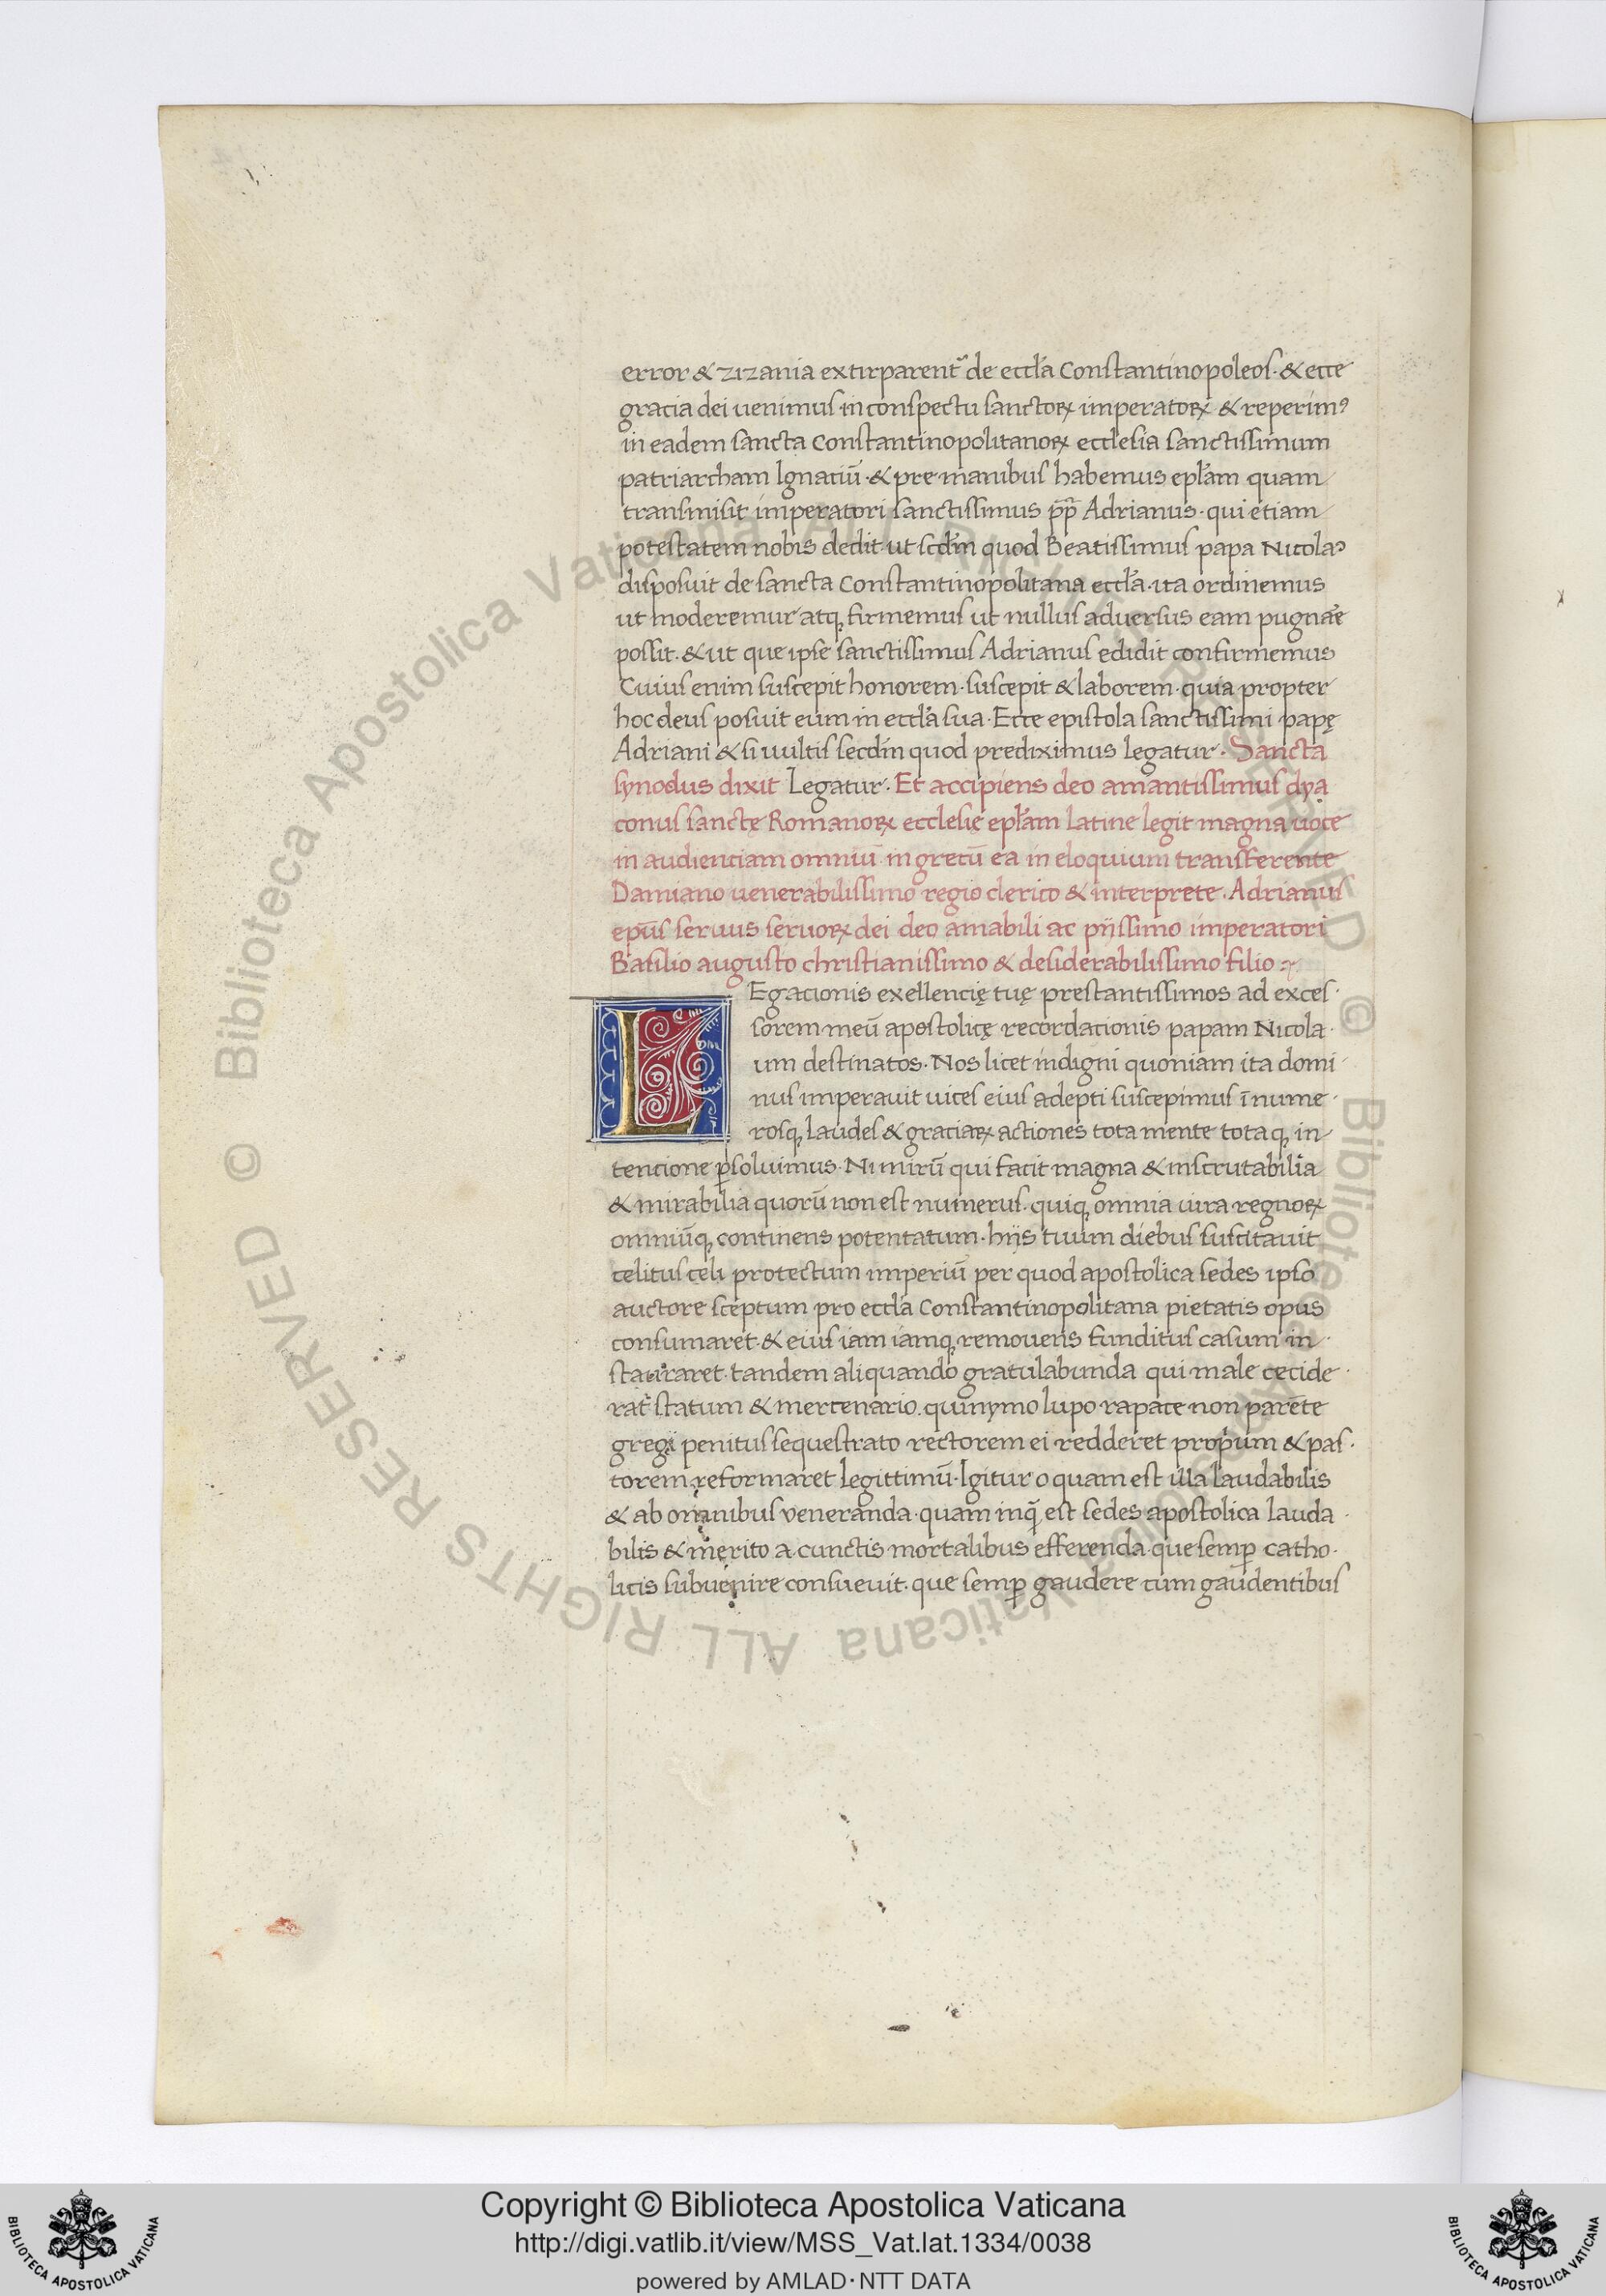 error & zizania extirparent᷑ de eccl̄a Constantinopoleos· & ecce
gracia dei uenimus in conspectu sanctoꝝ imperatoꝝ & reperimꝰ
in eadem sancta Constantinopolitanoꝝ ecclesia sanctissimum
patriarcham Ignaciū· & pre manibus habemus epl̄am quam
transmisit imperatori sanctissimus p̄p̄ Adrianus· qui etiam
potestatem nobis dedit· ut scd̄m quod Beatissimus papa Nicolaꝰ
disposuit de sancta Constantinopolitana eccl̄a· ita ordinemus
ut moderemur atqꝫ firmemus ut nullus aduersus eam pugnare
possit· & ut que ipse sanctissimus Adrianus edidit confirmemus
Cuius enim suscepit honorem· suscepit & laborem· quia propter
hoc deus posuit eum in eccl̄a sua· Ecce epistola sanctissimi papę
Adriani & si uultis secd̄m quod prediximus legatur· Sancta
synodus dixit Legatur· Et accipiens deo amantissimus dya
conus sanctę Romanoꝝ ecclesię epl̄am Latine legit magna uoce
in audienciam omniū in grecū ea in eloquium transferente
Damiano uenerabilissimo regio clerico & interprete· Adrianus
ep̄us seruus seruoꝝ dei deo amabili ac pijssimo imperatori
Basilio augusto christianissimo & desiderabilissimo filio
LEgacionis exellencię tuę prestantissimos ad exces·
sorem meū apostolicę recordacionis papam Nicola·
um destinatos· Nos licet indigni quoniam ita domi·
nus imperauit uices eius adepti suscepimus īnume·
rosqꝫ laudes & graciaꝝ actiones tota mente totaqꝫ in
tencione ꝑsoluimus· Nimirū qui facit magna & inscrutabilia
& mirabilia quorū non est numerus· quiqꝫ omnia iura regnoꝝ
omniūqꝫ continens potentatum· hijs tuum diebus suscitauit
celitus celi protectum imperiū per quod apostolica sedes ipso
auctore sceptum pro eccl̄a Constantinopolitana pietatis opus
consumaret· & eius iam iamqꝫ remouens funditus casum in·
stauraret· tandem aliquando gratulabunda qui male cecide·
rat statum & mercenario· quinymo lupo rapace non parēte
gregi penitus sequestrato rectorem ei redderet propium & pas·
torem reformaret legittimū· Igitur o quam est illa laudabilis
& ab omnibus veneranda· quam inqͣ est sedes apostolica lauda·
bilis & merito a cunctis mortalibus efferenda· que semꝑ catho·
licis subuenire consueuit· que semꝑ gaudere cum gaudentibus
Copyright © Biblioteca Apostolica Vaticana
http://digi.vatlib.it/view/MSS_Vat.lat.1334/0038
powered by AMLAD·NTT DATA
BIBLIOTECA APOSTOLICA VATICANA
BIBLIOTECA APOSTOLICA VATICANA
© Biblioteca Apostolica Vaticana ALL RIGHTS RESERVED © Biblioteca Apostolica Vaticana ALL RIGHTS RESERVED